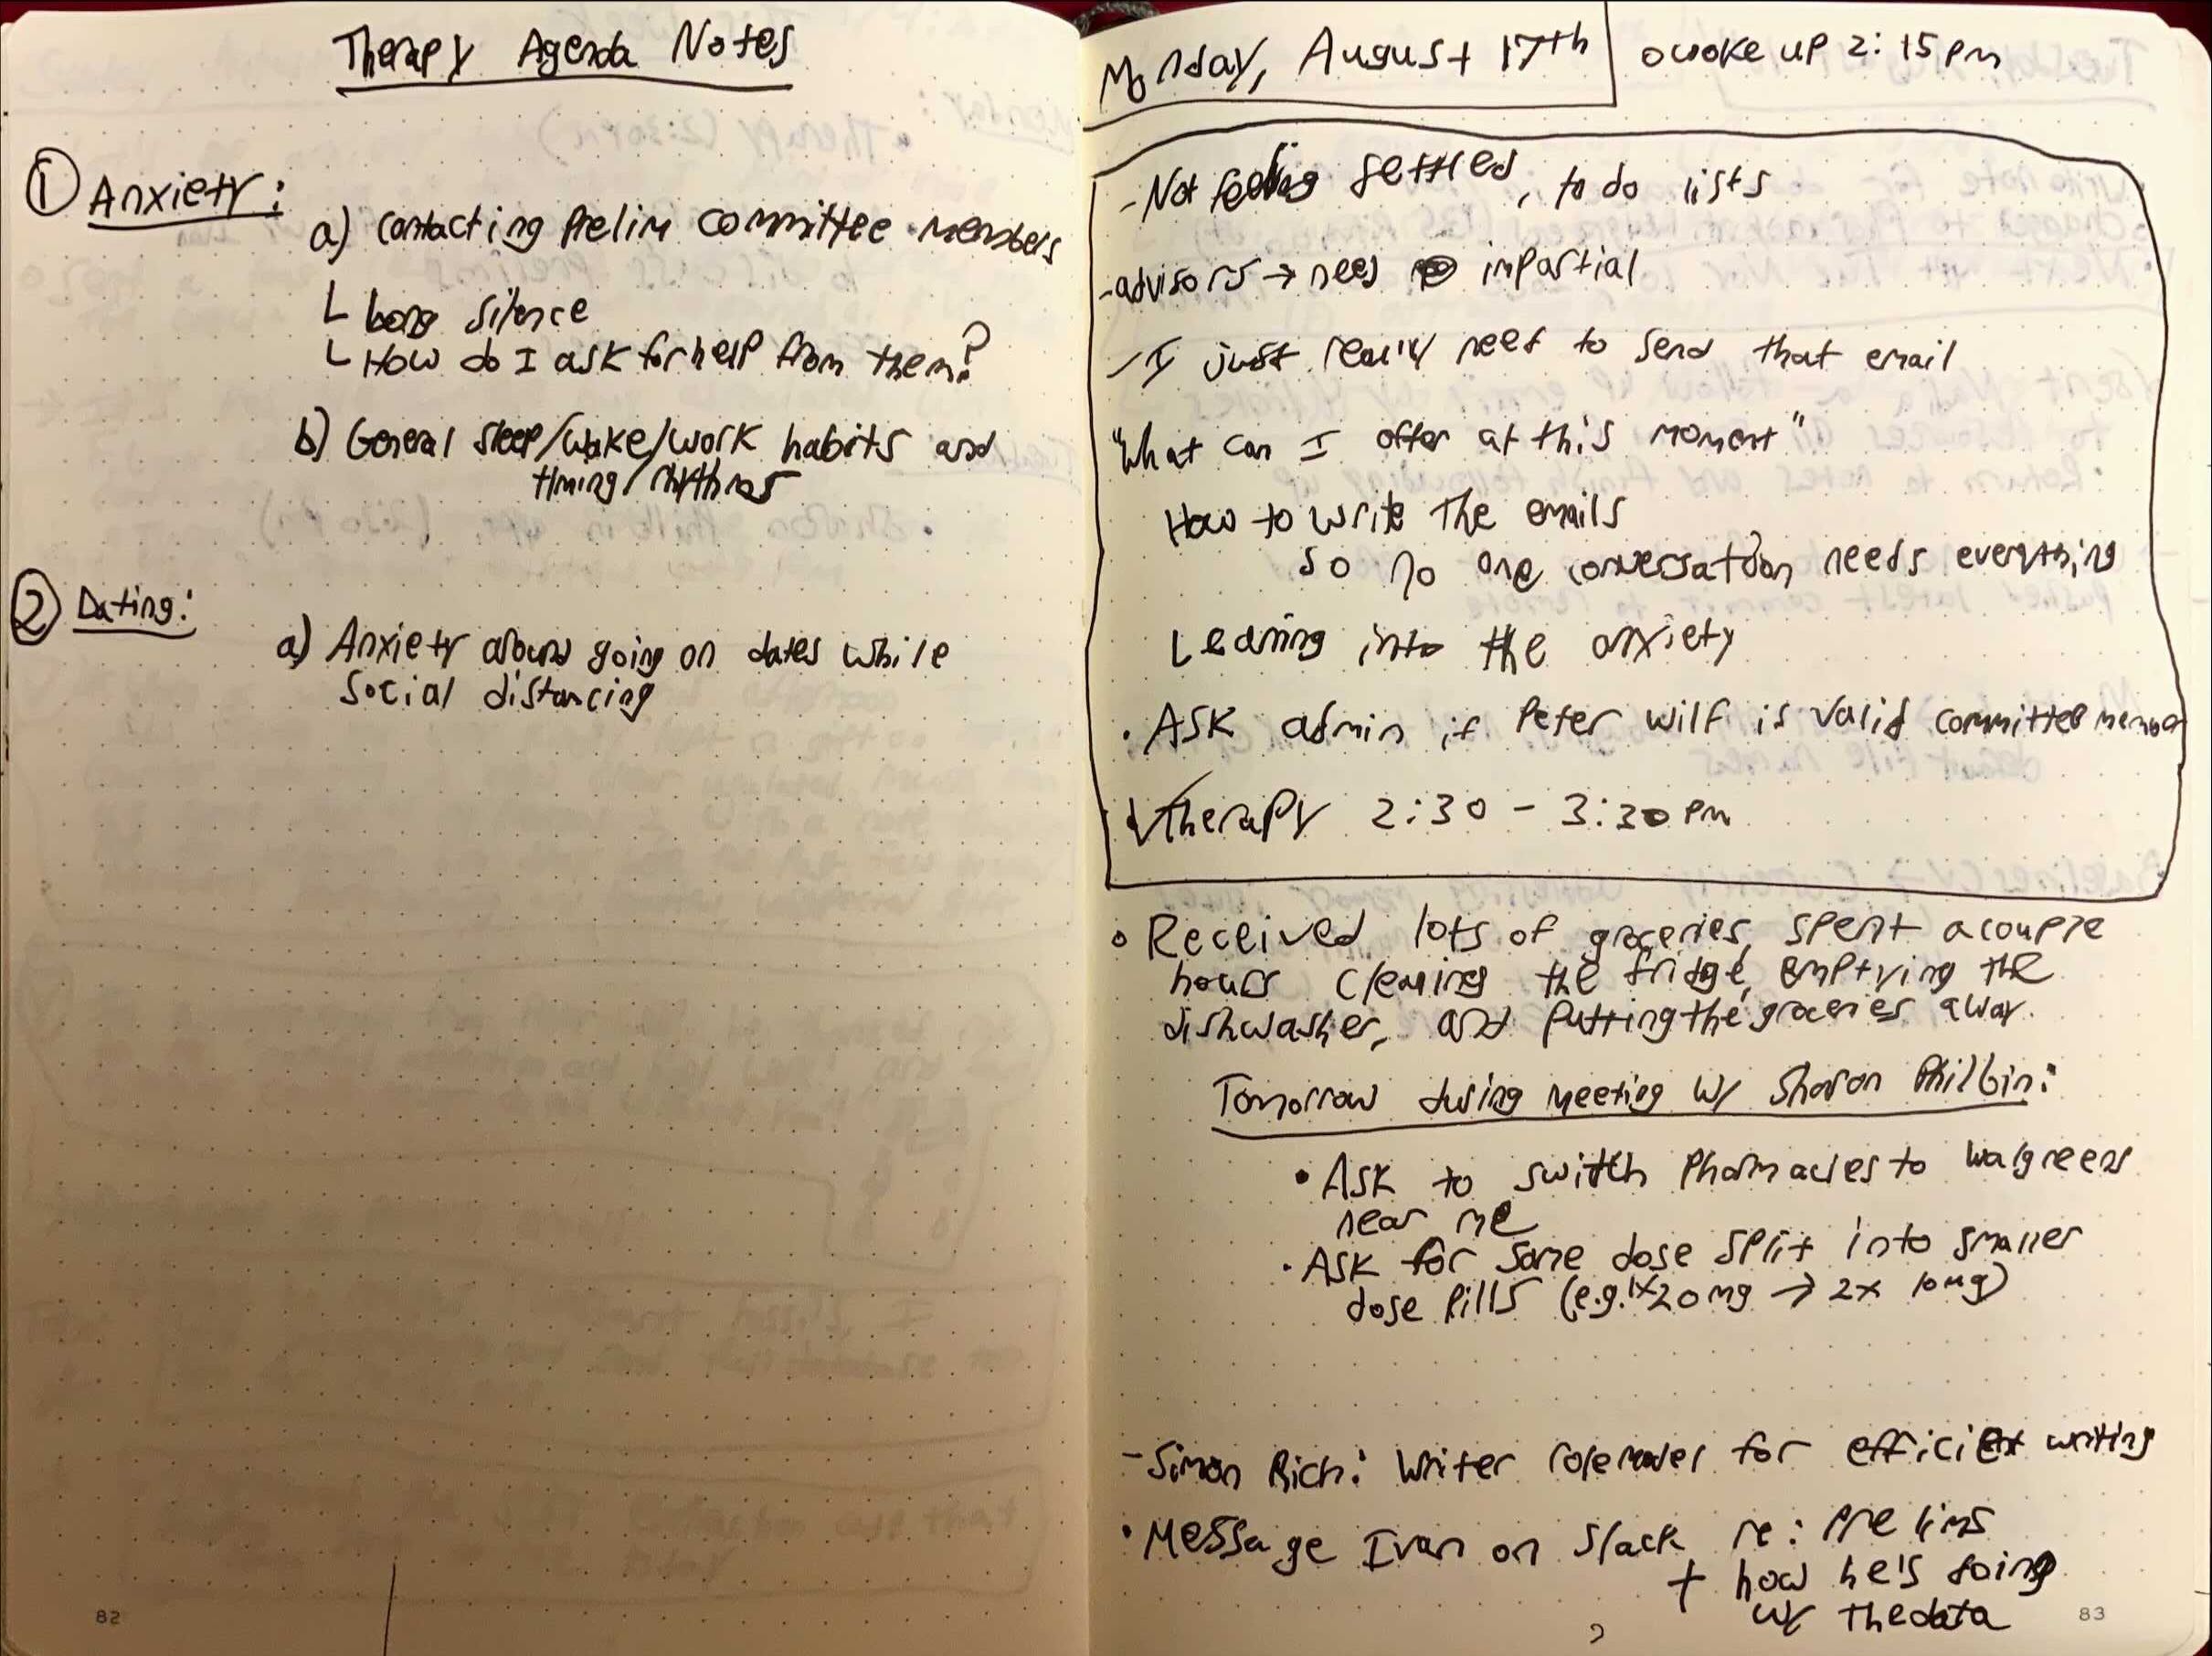 Therapy Agenda Notes
① Anxiety:
a) Contacting Prelim Committee members
└ Long silence
└ How do I ask for help from them?
b) General sleep/wake/work habits and
timing/rhythms
② Dating:
a) Anxiety around going on dates while
social distancing
82
Monday, August 17th
o woke up 2:15 pm
- Not feeling settled, to do lists
- advisors → need impartial
- I just really need to send that email
"What can I offer at this moment"
How to write the emails
so no one conversation needs everything
Leaning into the anxiety
• Ask admin if Peter Wilf is valid committee member
✓ Therapy 2:30 - 3:30 pm
o Received lots of groceries, spent a couple
hours cleaning the fridge, emptying the
dishwasher, and putting the groceries away.
Tomorrow during meeting w/ Sharon Philbin:
• Ask to switch Pharmacies to walgreens
near me
• Ask for same dose split into smaller
dose pills (e.g. 1x20mg → 2x 10mg)
- Simon Rich: Writer role model for efficient writing
• Message Ivan on Slack re: Prelims
+ how he's doing
w/ the data
83